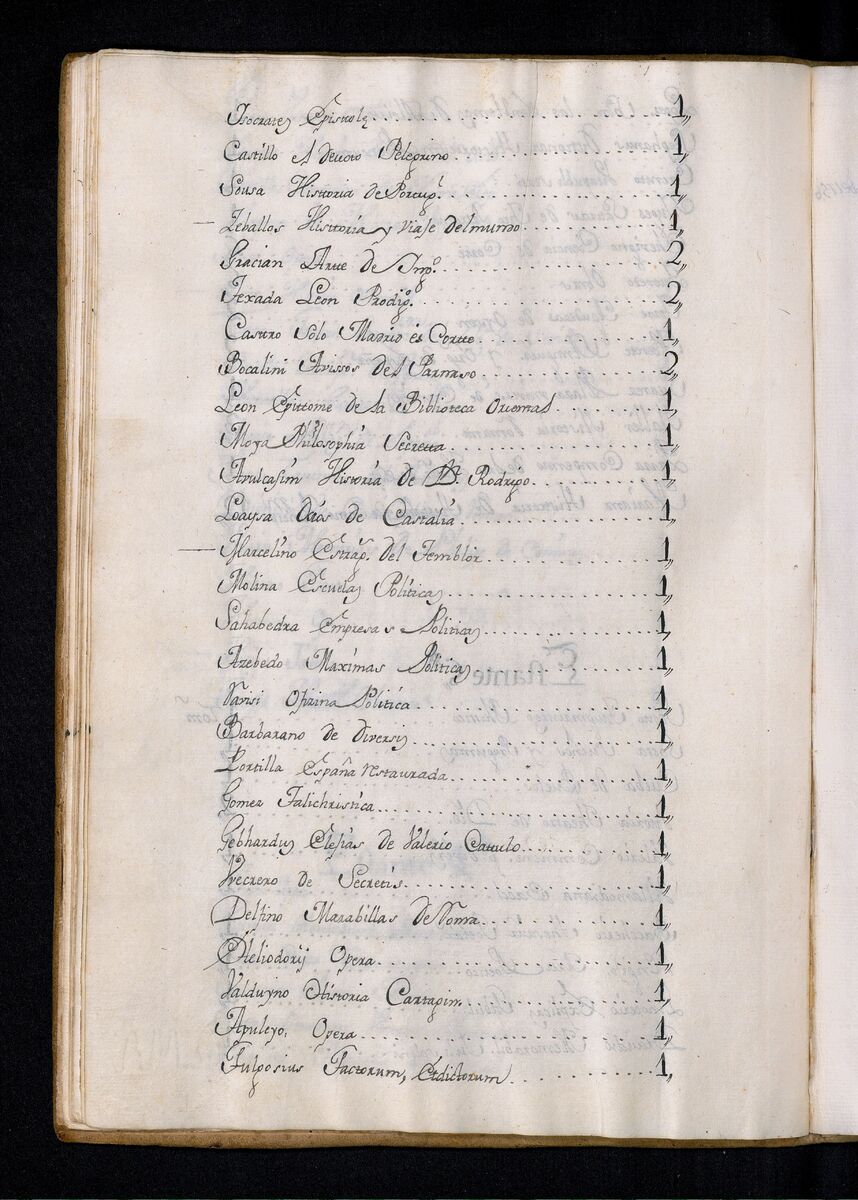 Isocrates Epistolę 1,,
Castillo el devoto Pelegrino 1,,
Sousa Historia de Portugˡ. 1,,
Zeballos Historia y viaje del mundo 1,,
Gracian Arte de Ingº. 2,,
Texada Leon Prodigº. 2,,
Castro Solo Madrid es Cortte 1,,
Bocalini Avissos del Parnaso 2,,
Leon Epittome de la Biblioteca Oriental 1,,
Moya Philosophia Secretta 1,,
Avulcasim Historia de D. Rodrigo 1,,
Loaysa de Castalia 1,,
Marcelino Estrag. del Temblor 1,,
Molina Escuelas Politicas 1,,
Sahabedra Empresas Politicas 1,,
Azebedo Maximas Politicas 1,,
Sarisi Ofizina Politica 1,,
Barbarano de diversis 1,,
Portilla España restaurada 1,,
Gomez Talichristica 1,,
Gebhardus Elejias de Valerio Catulo 1,,
Vvecrero de Secretis 1,,
Delfino Marabillas de Roma 1,,
Heliodorij Opera 1,,
Valduyno Historia Cartagin. 1,,
Apuleyo, Opera 1,,
Fulgosius Factorum, Etdictorum 1,,